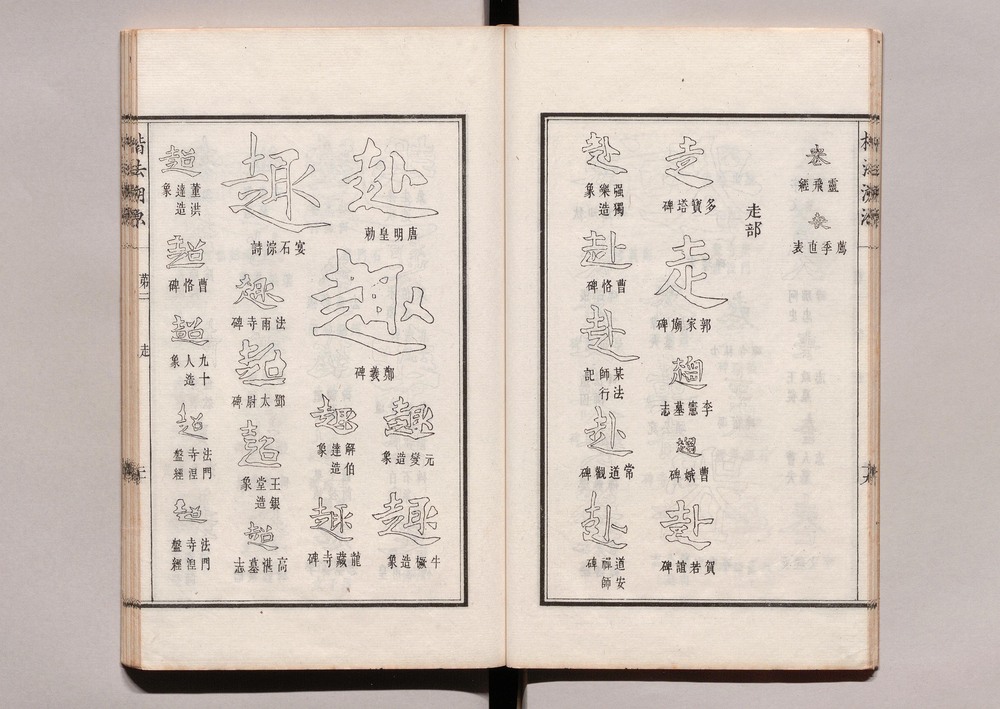 靈飛經
薦季直表
走部
走
多寶塔碑
走
郭家廟碑
趨
李憲墓志
趨
曹娥碑
赴
賀若誼碑
赴
强獨樂造象
赴
曹恪碑
赴
某法師行記
赴
常道觀碑
赴
道安禪師碑
赴
唐明皇勅
趣
鄭羲碑
趣
元燮造象
趣
牛橛造象
趣
解伯達造象
趣
龍藏寺碑
趣
宴石淙詩
趣
法雨寺碑
超
鄧太尉碑
超
王銀堂造象
超
高湛墓志
超
董洪達造象
超
曹恪碑
超
九十人造象
超
法門寺涅盤經
超
法門寺涅盤經
楷法溯源
弟二
走